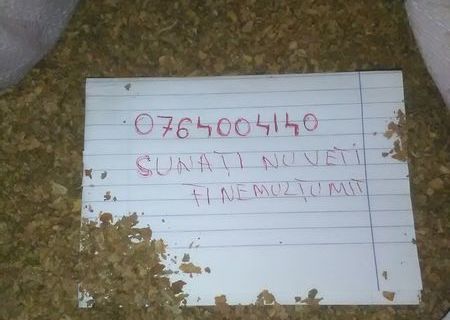 0764004140
SUNAȚI NU VEȚI
FI NEMUZȚUMIT